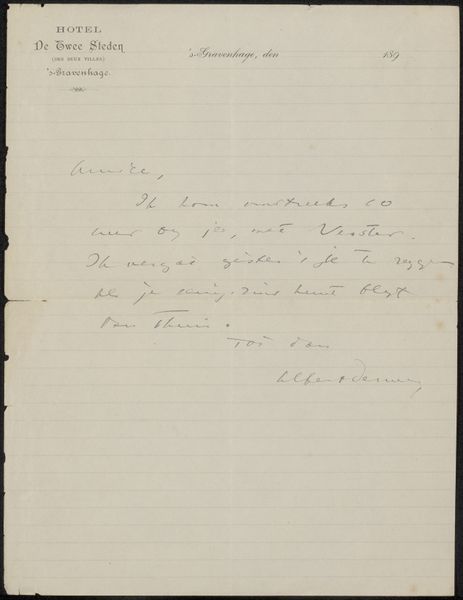 HOTEL
De Twee Steden
(DES DEUX VILLES)
's-Gravenhage.
's-Gravenhage, den 189
Amice,
Ik kom omstreeks 10
uur by je, met Verster.
Ik vergat gister 't je te zeggen
als je kunt blyf
dan thuis.
Tot dan
Albert Verwey